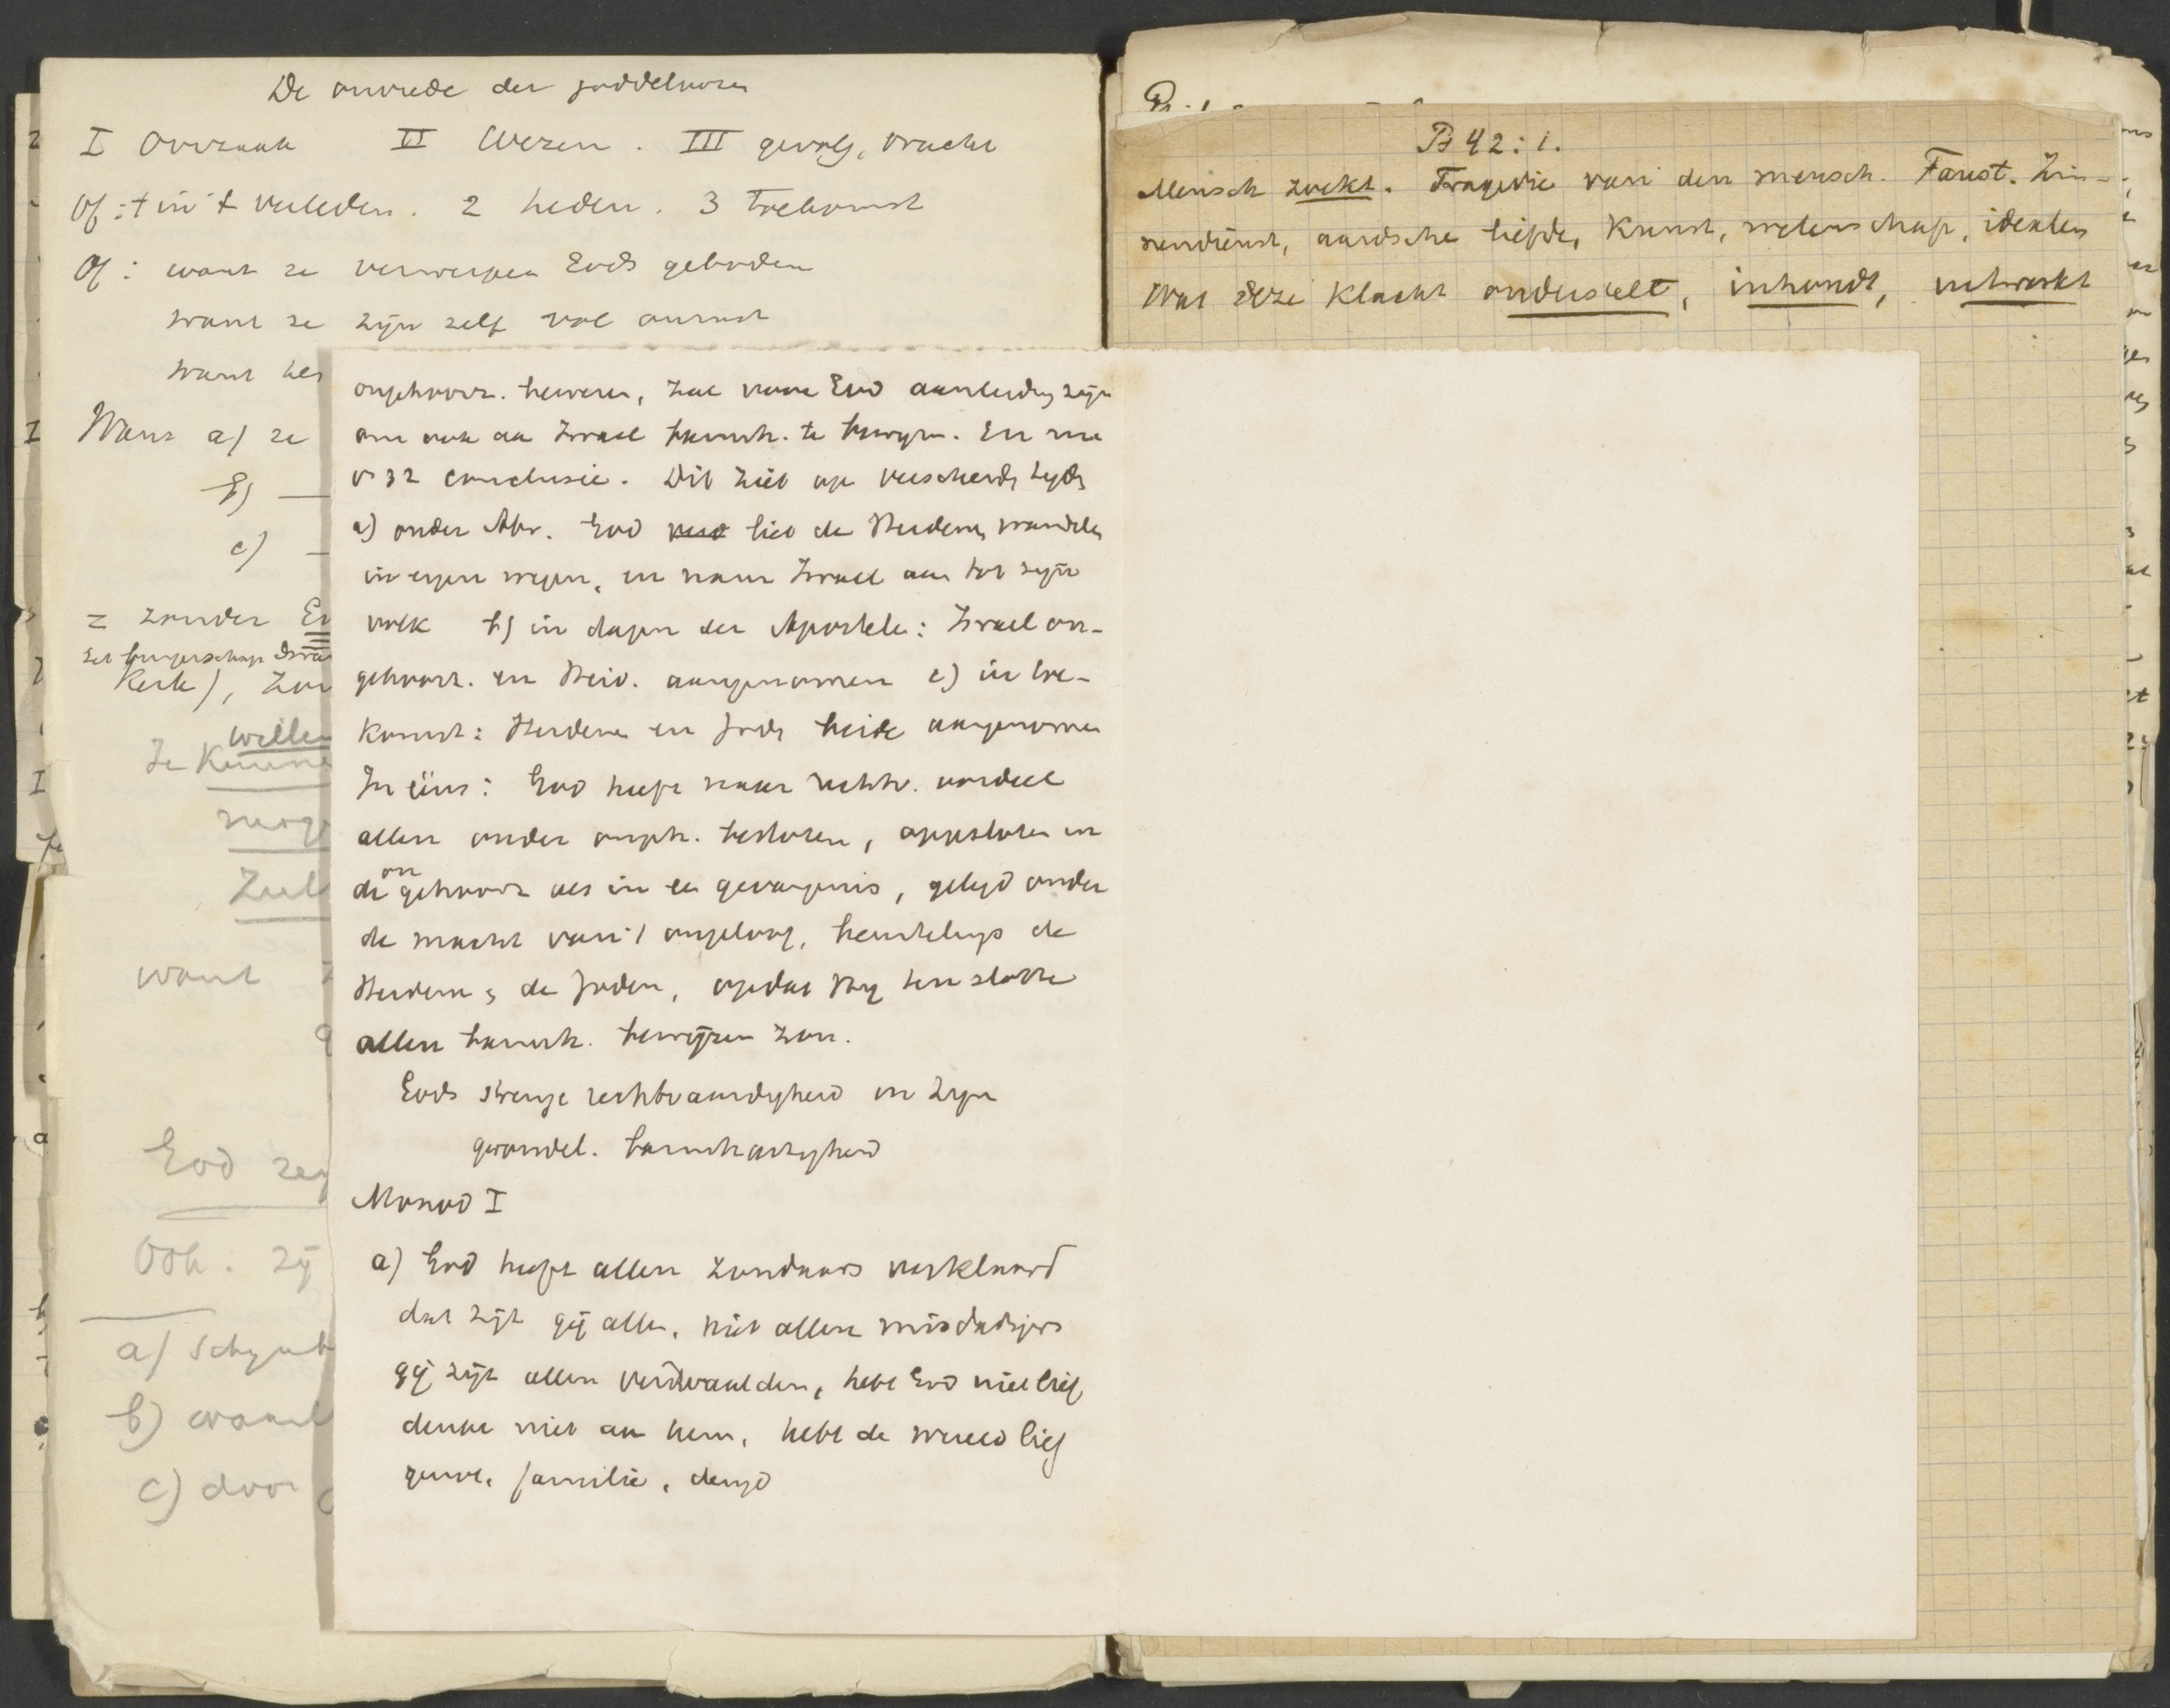 De onvrede der goddeloozen
I Oorzaak II Wezen. III gevolg, vrucht
Of: 1 in 't verleden. 2 heden. 3 toekomst
Of: want ze verwerpen Gods geboden
want ze zijn zelf vol onrust
want het
Want a) ze
b) —
c) —
= zonder
het burgerschap Isra
Kerk), zon
willen
Ze kunne
moge
Zull
want
God zeg
Ook. zij
a) schynb
b) want
c) door
ongehoorz. bewezen, zal voor God aanleiding zijn
om ook aan Israel barmh. te bewyzen. En nu
v 32 conclusie. Dit ziet op verscheid. tyds
a) onder Abr. God liet de Heidenen wandelen
in eigen wegen, en nam Israel aan tot zyn
volk b) in dagen der Apostelen: Israel on-
gehoorz. en Heid. aangenomen c) in toe-
komst: Heidenen en Joden beide aangenomen
In één: God heeft naar rechtv. oordeel
allen onder ongeh. besloten, opgesloten in
de ongehoorz als in een gevangenis, gelegd onder
de macht van 't ongeloof, beurtelings de
Heidenen en de Joden, opdat Hy ten slotte
allen barmh. bewijzen zou.
Gods strenge rechtvaardigheid en zyn
barmhartigheid
Monod I
a) God heeft allen zondaars verklaard
dat zijt gij allen, niet allen misdadigers
gij zijt allen verdwaalden, hebt God niet lief
denkt niet aan hem, hebt de wereld lief
genot, familie, deugd
Ps 42:1.
Mensch zoekt. Tragedie van den mensch. Faust. Zin-
nendienst, aardsche liefde, Kunst, wetenschap, idealen
Wat deze klacht onderstelt, inhoudt, uitwerkt